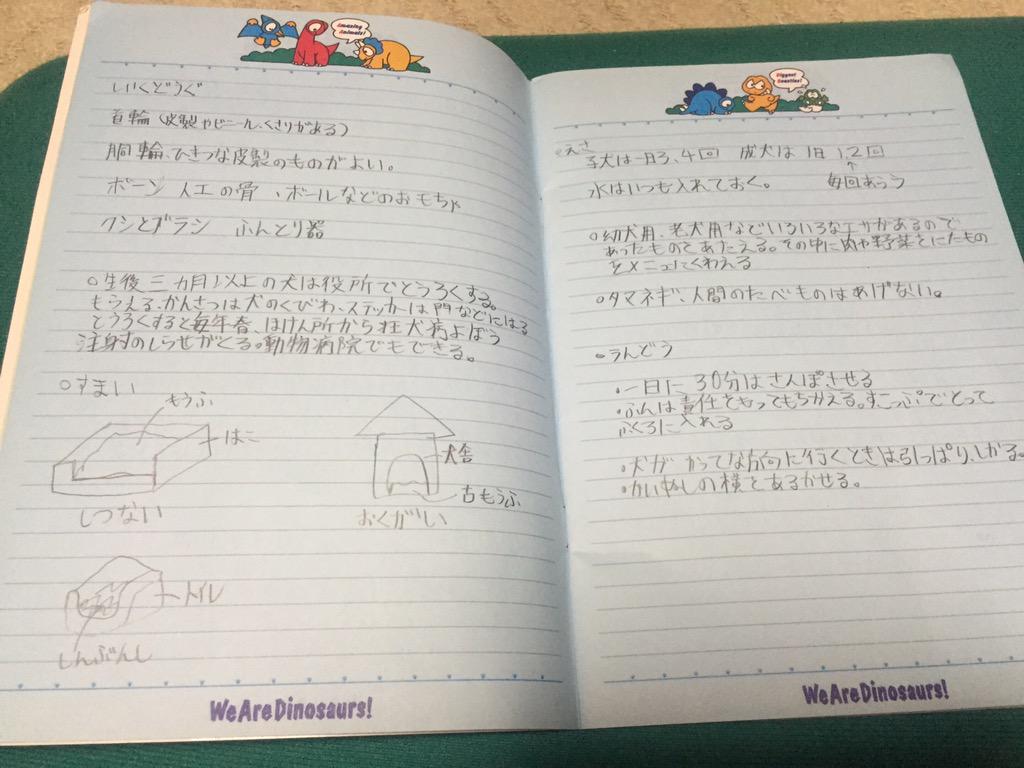 Amazing
Animals!
しいくどうぐ
首輪(皮製やビニール、くさりがある)
胴輪、ひきつな皮製のものがよい。
ボーン 人工の骨、ボールなどのおもちゃ
クシとブラシ ふんとり器
○生後三カ月以上の犬は役所でとうろくする。
もらえる、かんさつは犬のくびわ、ステッカーは門などにはる
とうろくすると毎年春、ほけん所から狂犬病よぼう
注射のしらせがくる。動物病院でもできる。
○すまい
もうふ
はこ
しつない
犬舎
古もうふ
おくがい
トイレ
しんぶんし
WeAreDinosaurs!
Biggest
Beasties!
○えさ
子犬は一日3、4回 成犬は1日1、2回
水はいつも入れておく。 毎回あらう
○幼犬用、老犬用などいろいろなエサがあるので
あったものをあたえる。その中に肉や野菜をにたもの
をメニュにくわえる
○タマネギ、人間のたべものはあげない。
○うんどう
・一日に30分はさんぽさせる
・ふんは責任をもってもちかえる。すこっぷでとって
ふくろに入れる
・犬がかってな方向に行くときは引っぱり、しかる。
・かい主の横をあるかせる。
WeAreDinosaurs!